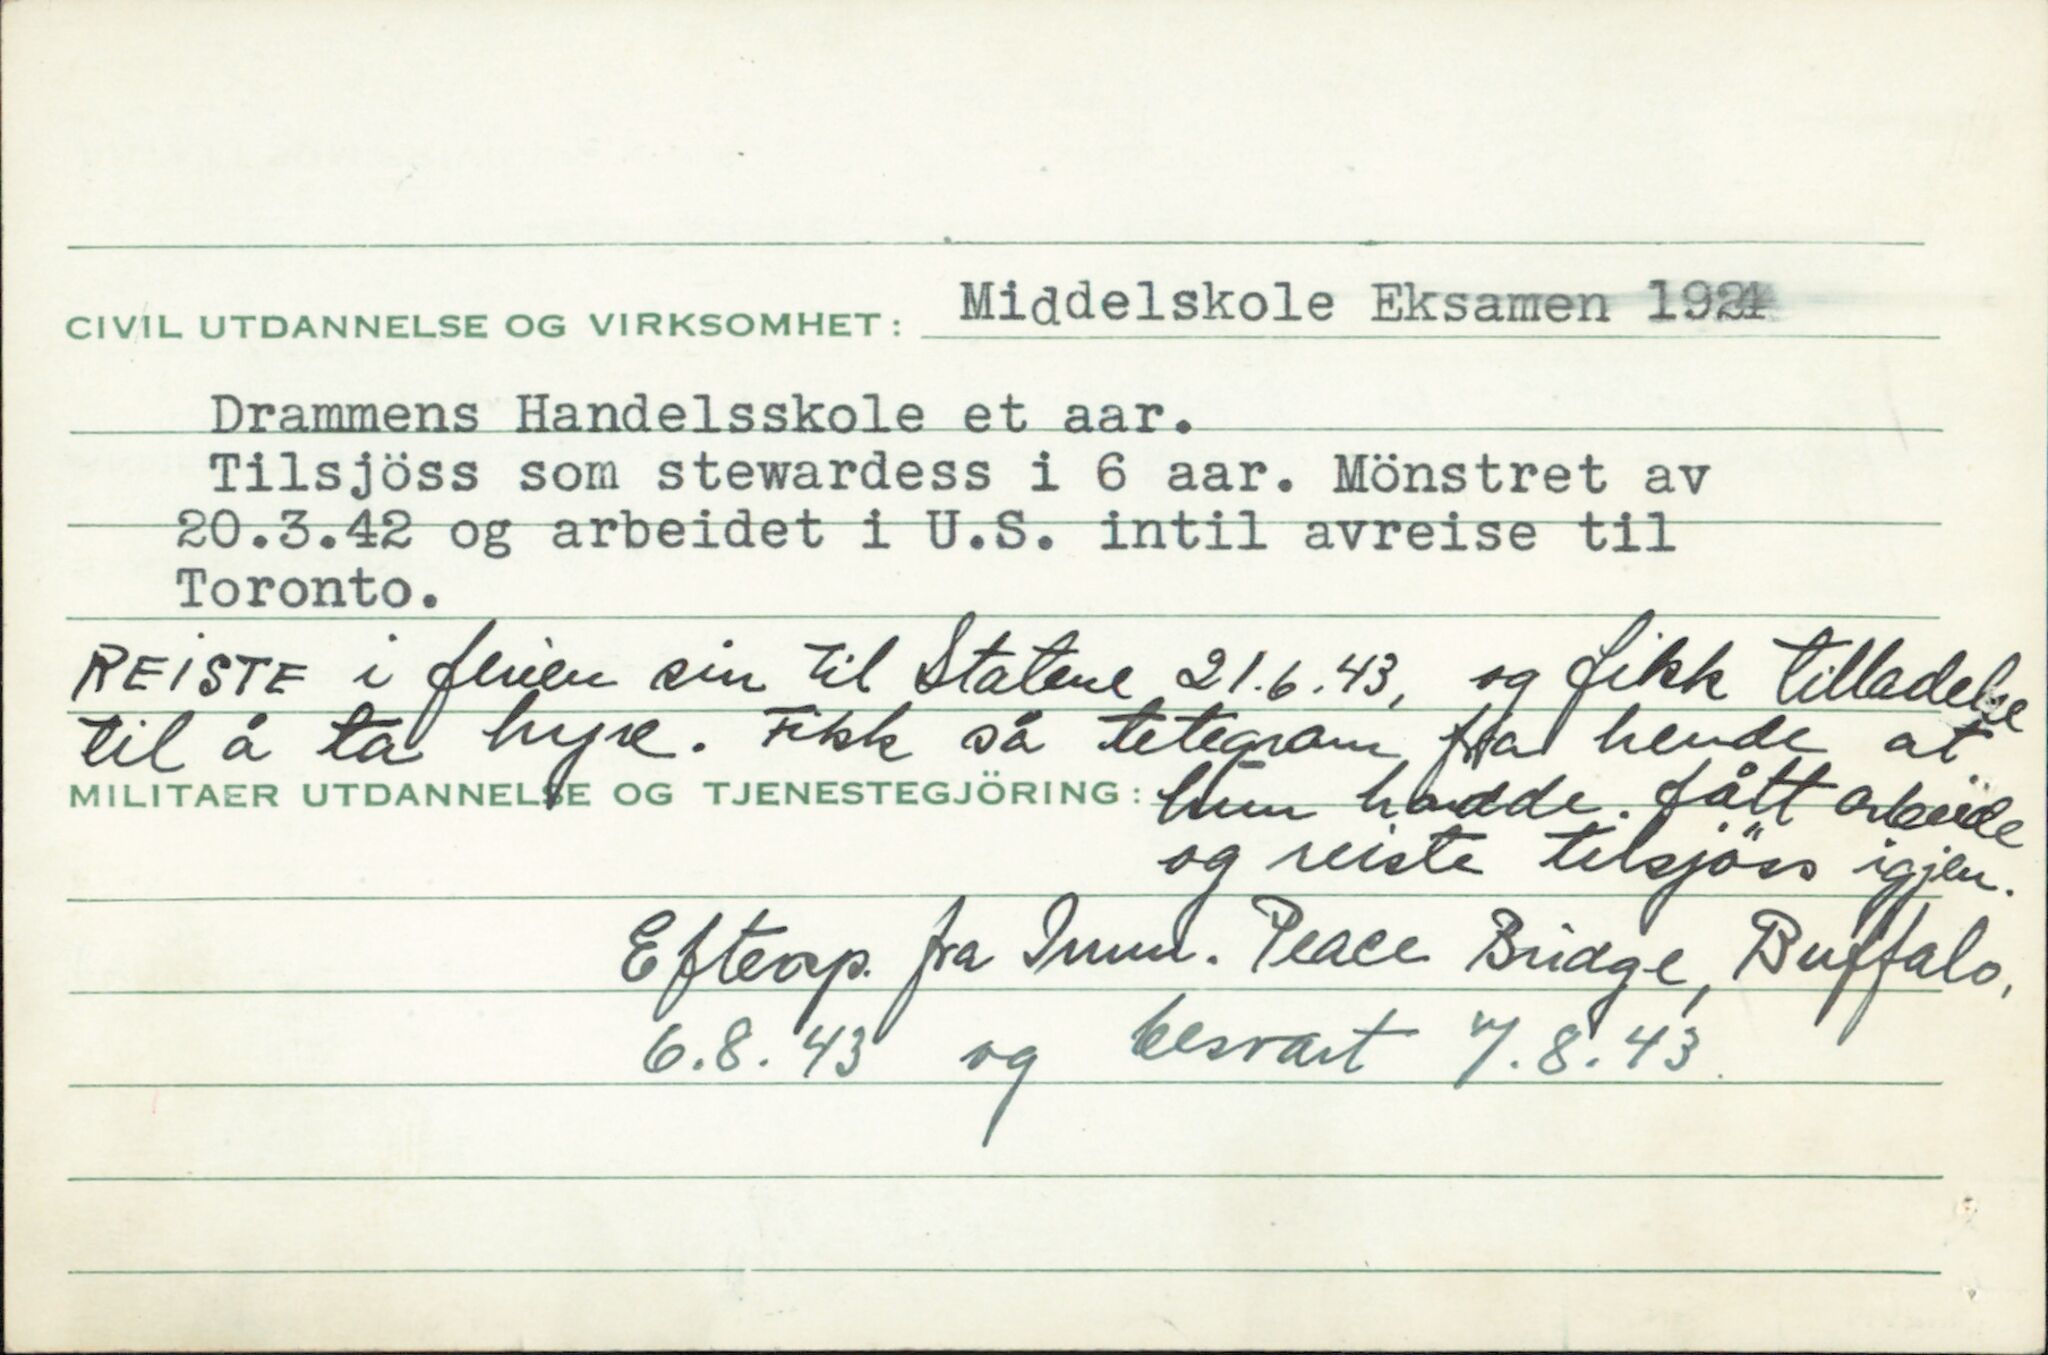 CIVIL UTDANNELSE OG VIRKSOMHET: Middelskole Eksamen 1924
Drammens Handelsskole et aar.
Tilsjöss som stewardess i 6 aar. Mönstret av
20.3.42 og arbeidet i U.S. intil avreise til
Toronto.
REISTE i ferien sin til Statene 21.6.43, og fikk tilladelse
til å ta hyre. Fikk så telegram fra hende at
MILITAER UTDANNELSE OG TJENESTEGJÖRING: hun hadde fått arbeide
og reiste tilsjöss igjen.
Eftersp. fra Imm. Peace Bridge, Buffalo,
6.8.43 og besvart 7.8.43.